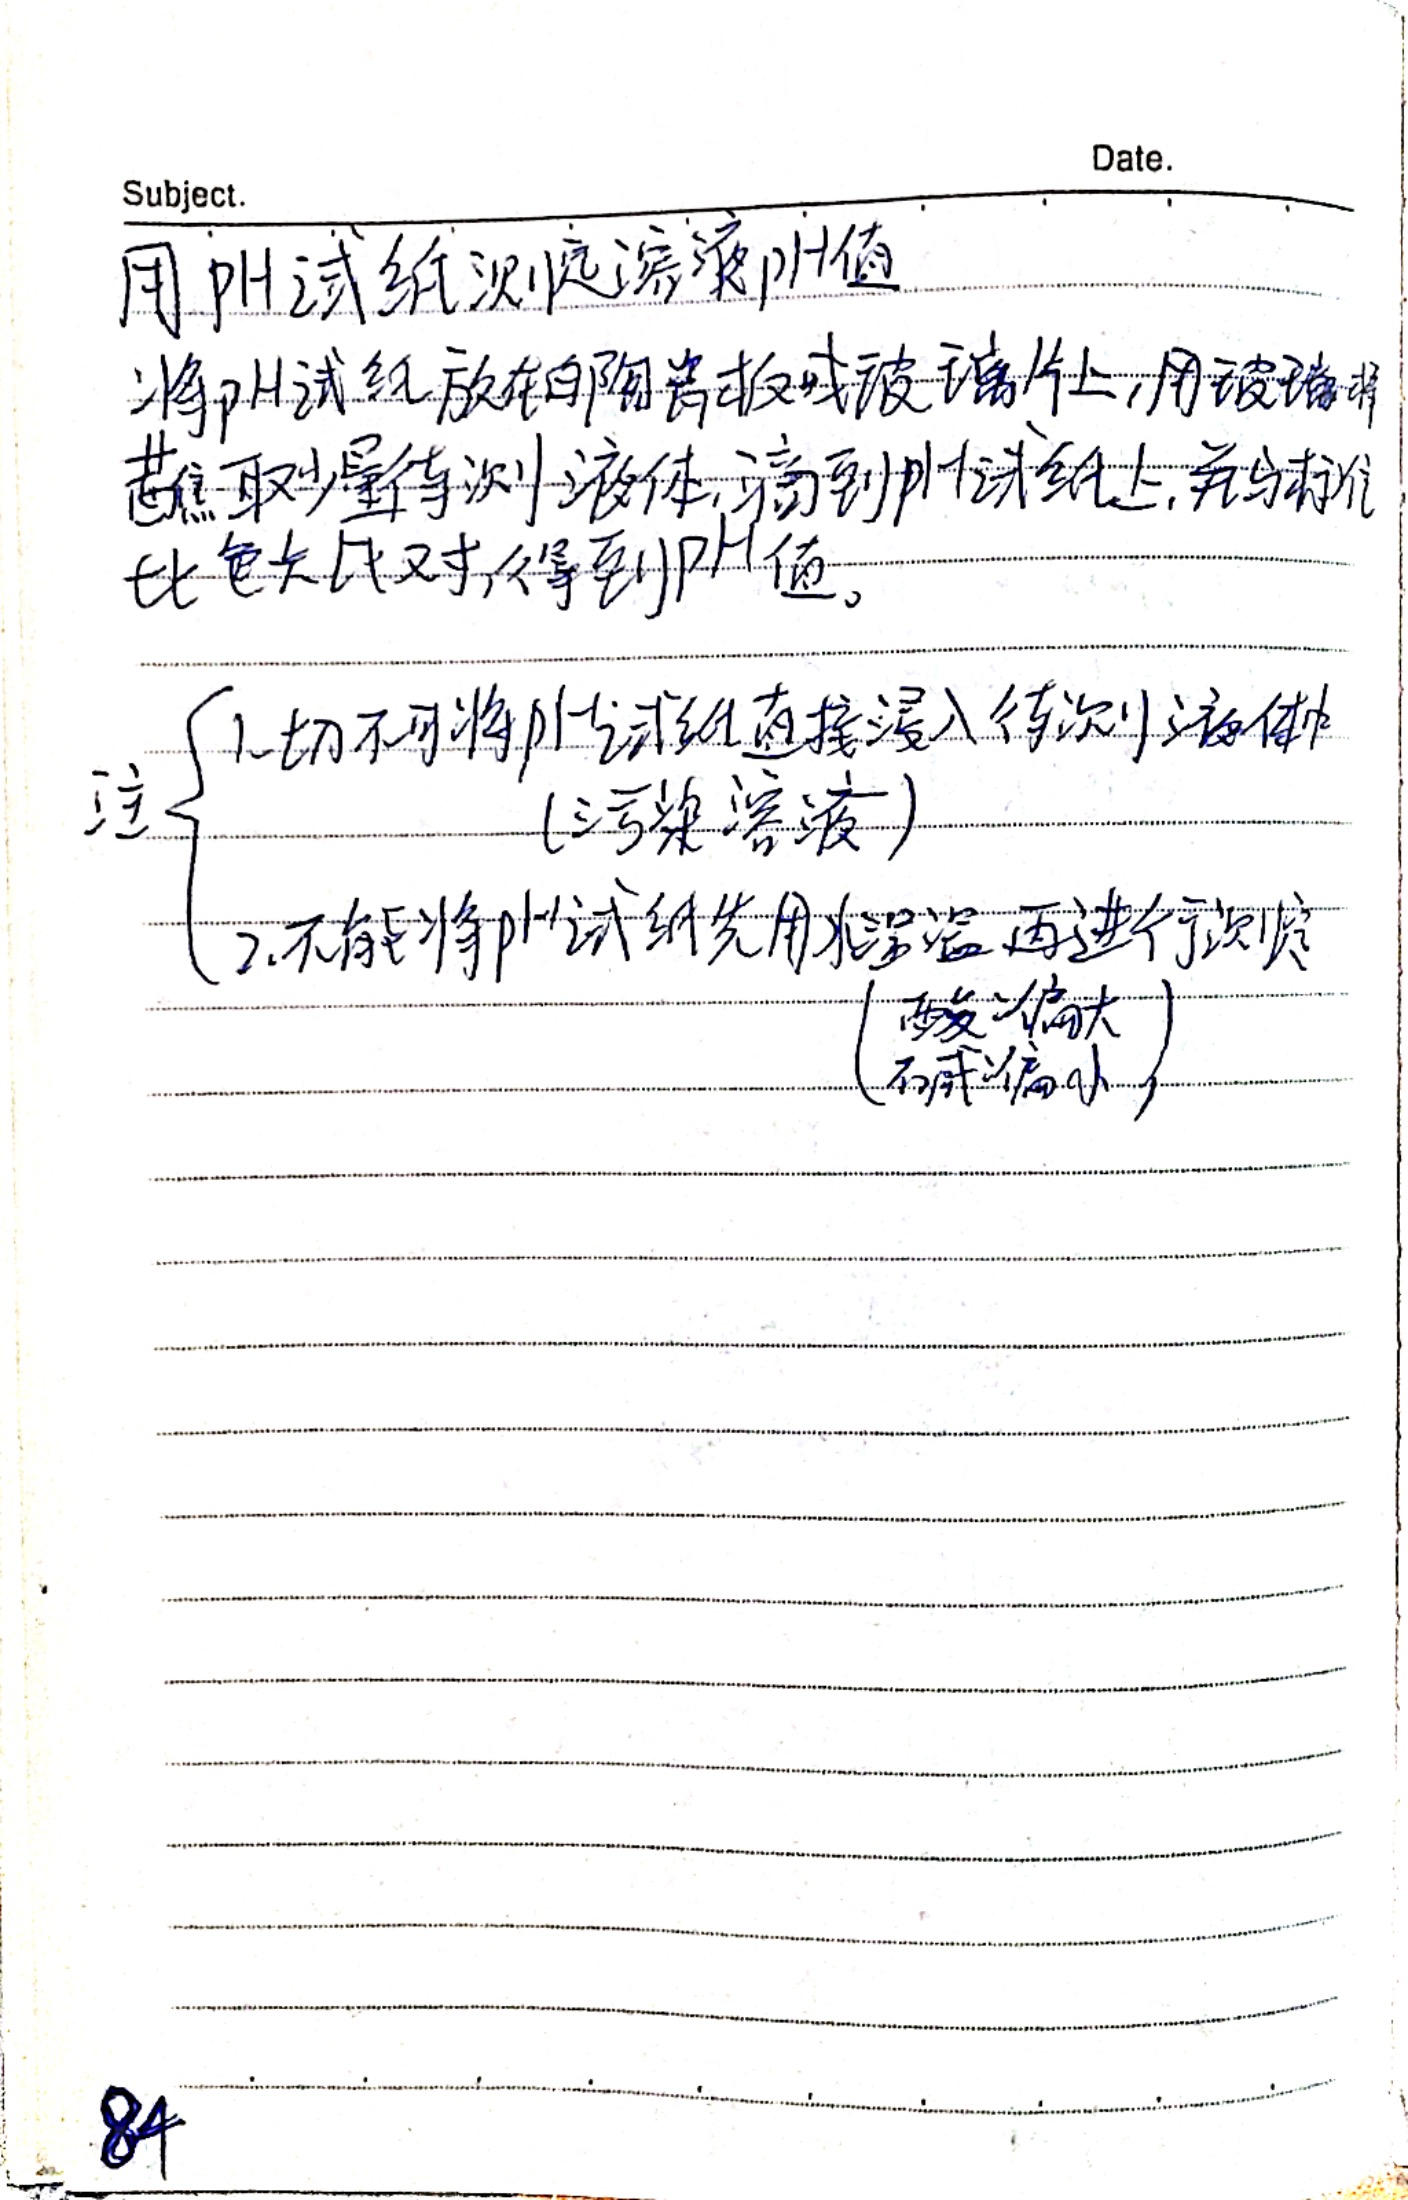 Date.
Subject.
用pH试纸测定溶液pH值
将pH试纸放在白陶瓷板或玻璃片上,用玻璃棒
蘸取少量待测液体,滴到pH试纸上,并与标准
比色卡比对,得到pH值。
注
1.切不可将pH试纸直接浸入待测液体中
(污染溶液)
2.不能将pH试纸先用水湿润再进行测定
(酸偏大
碱偏小)
84